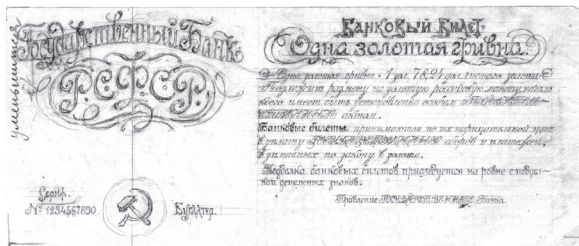 уменьшится
Государственный Банк
Р.С.Ф.С.Р.
Серия.
№ 1234567890.
Бухгалтер.
Банковый Билет.
Одна золотая гривна.
Одна золотая гривна = 1 зол. 78,24 дол. чистого золота
подлежит размену на золотую российскую монету,
имеет быть установлена особым
актом.
Банковые билеты принимаются по их нарицательной цене
в уплату государственных сборов и платежей,
взимаемых по закону в золоте.
Подделка банковых билетов преследуется на ровне с подделкой
денежных знаков.
Правление Государственного Банка.